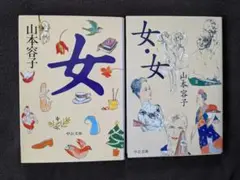 女
山本容子
中公文庫
女・女
山本容子
中公文庫